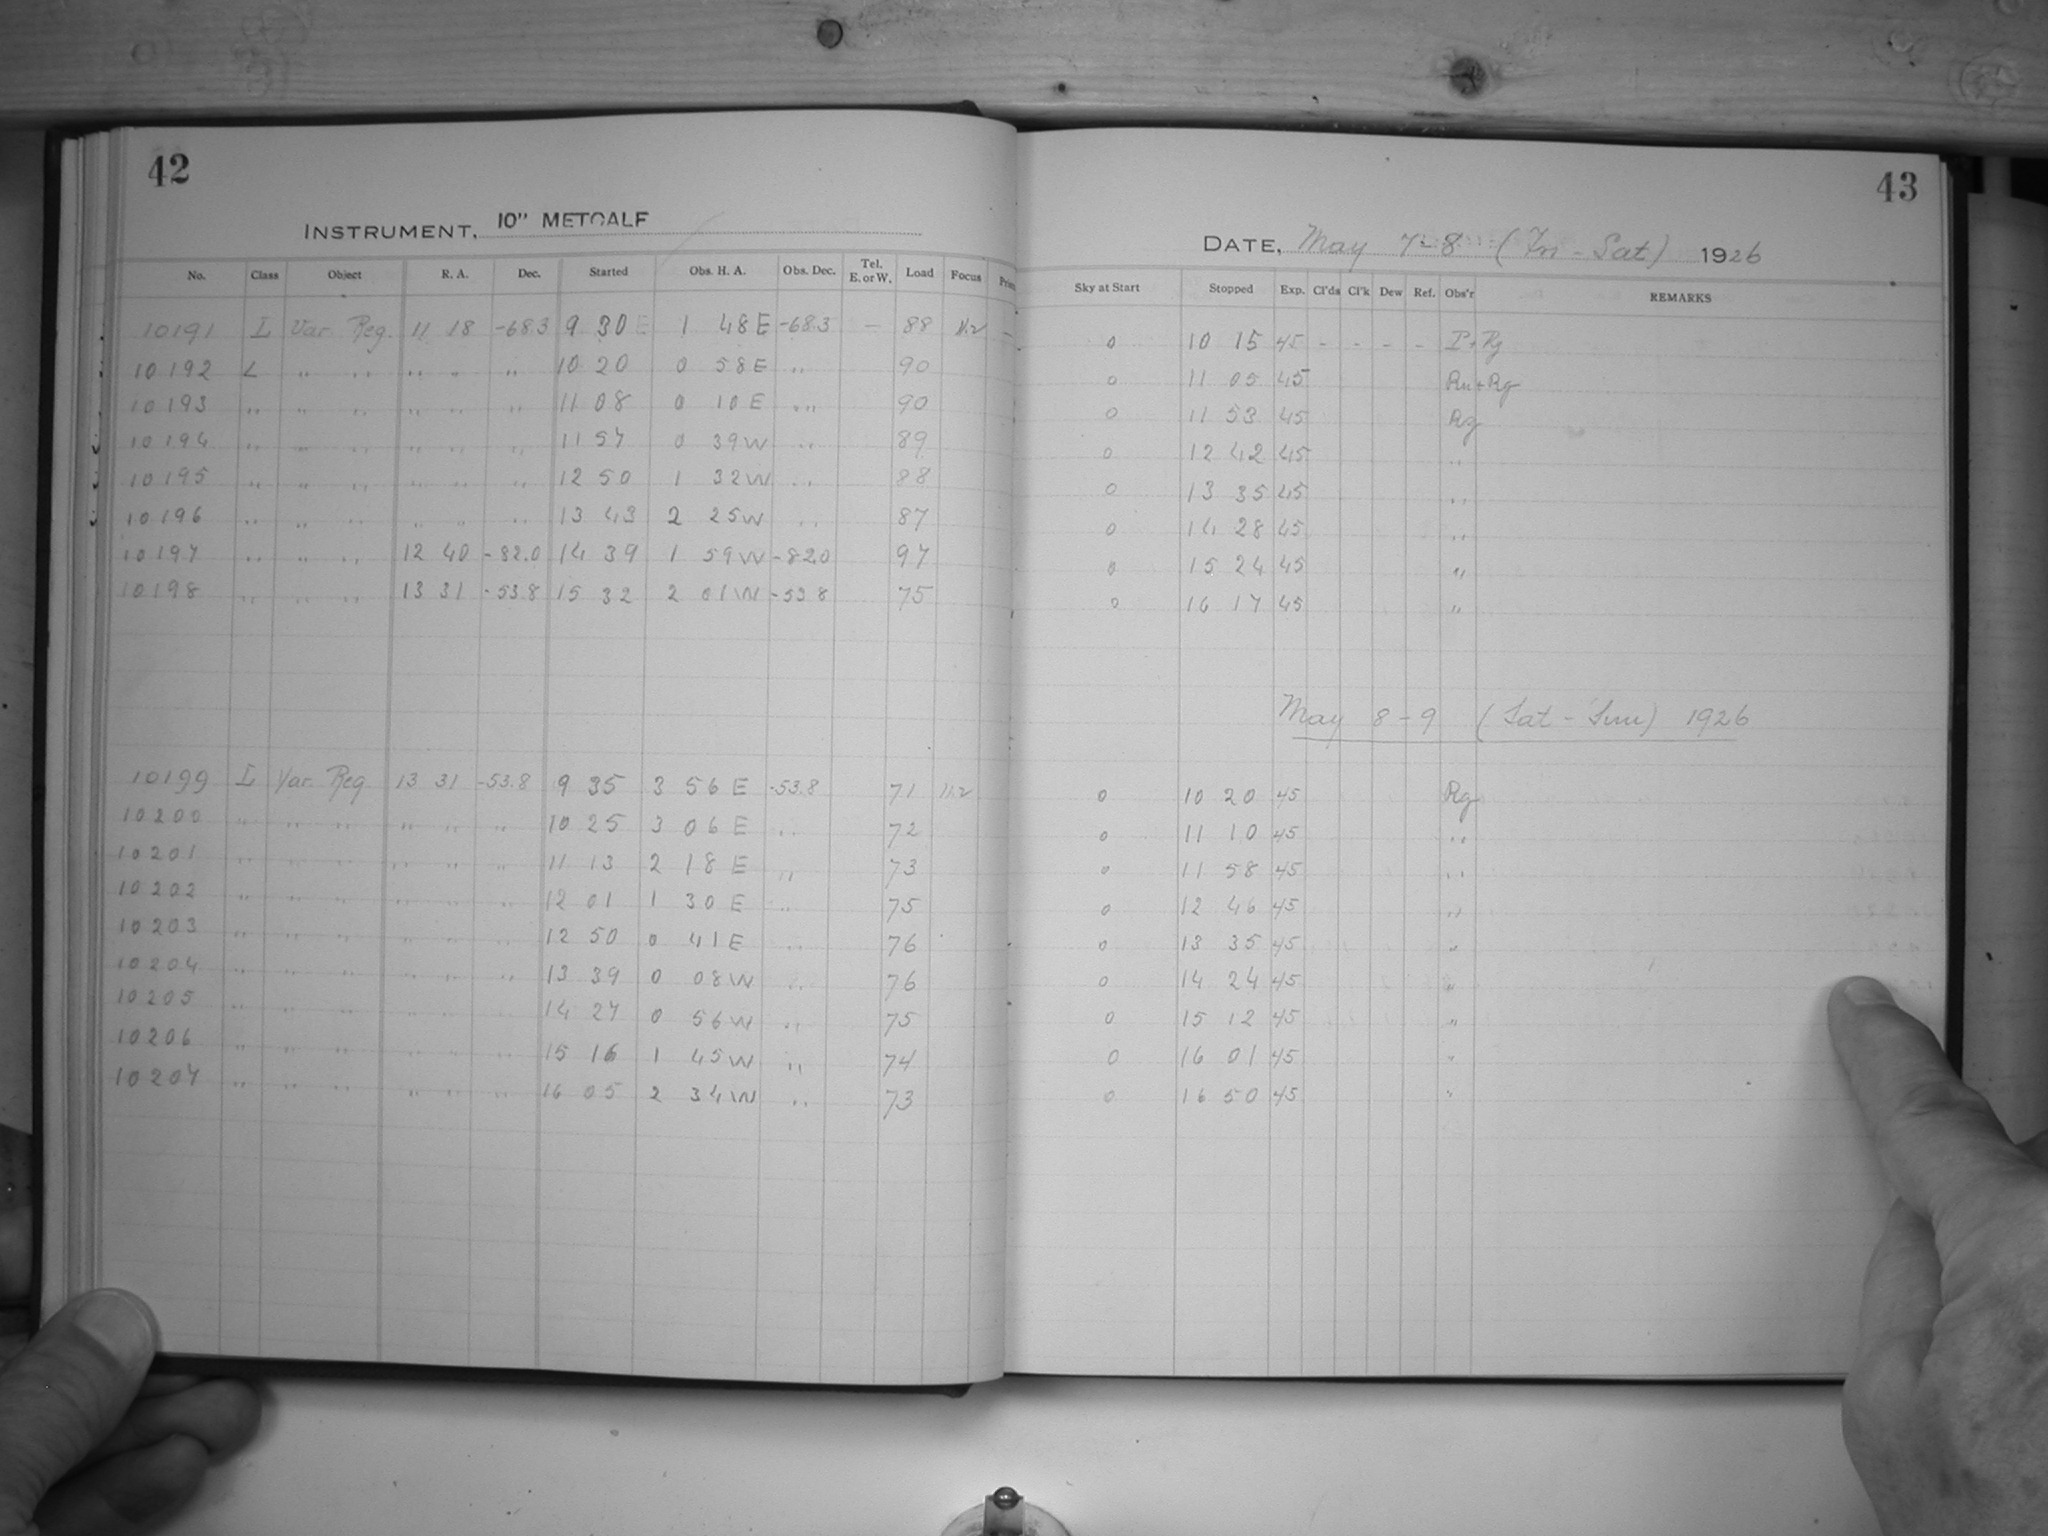 42
INSTRUMENT, 10" METCALF
No. Class Object R. A. Dec. Started Obs. H. A. Obs. Dec. Tel. E. or W. Load Focus
10191 L Var. Reg. 11 18 -68.3 9 30 E 1 48 E -68.3 — 88 11.2 —
10192 L " " " " " 10 20 0 58 E " 90
10193 " " " " " " 11 08 0 10 E " 90
10194 " " " " " " 11 57 0 39 W " 89
10195 " " " " " " 12 50 1 32 W " 88
10196 " " " " " " 13 43 2 25 W " 87
10197 " " " 12 40 -82.0 14 39 1 59 W -82.0 97
10198 " " " 13 31 -53.8 15 32 2 01 W -53.8 75
10199 L Var. Reg. 13 31 -53.8 9 35 3 56 E -53.8 71 11.2
10200 " " " " " " 10 25 3 06 E " 72
10201 " " " " " " 11 13 2 18 E " 73
10202 " " " " " " 12 01 1 30 E " 75
10203 " " " " " " 12 50 0 41 E " 76
10204 " " " " " " 13 39 0 08 W " 76
10205 " " " " " " 14 27 0 56 W " 75
10206 " " " " " " 15 16 1 45 W " 74
10207 " " " " " " 16 05 2 34 W " 73
43
DATE, May 7-8 (Fri - Sat) 1926
Sky at Start Stopped Exp. Cl'ds Cl'k Dew Ref. Obs'r REMARKS
0 10 15 45 - - - - P + Rg
0 11 05 45 Rn + Rg
0 11 53 45 Rg
0 12 42 45 "
0 13 35 45 "
0 14 28 45 "
0 15 24 45 "
0 16 17 45 "
May 8-9 (Sat - Sun) 1926
0 10 20 45 Rg
0 11 10 45 "
0 11 58 45 "
0 12 46 45 "
0 13 35 45 "
0 14 24 45 "
0 15 12 45 "
0 16 01 45 "
0 16 50 45 "